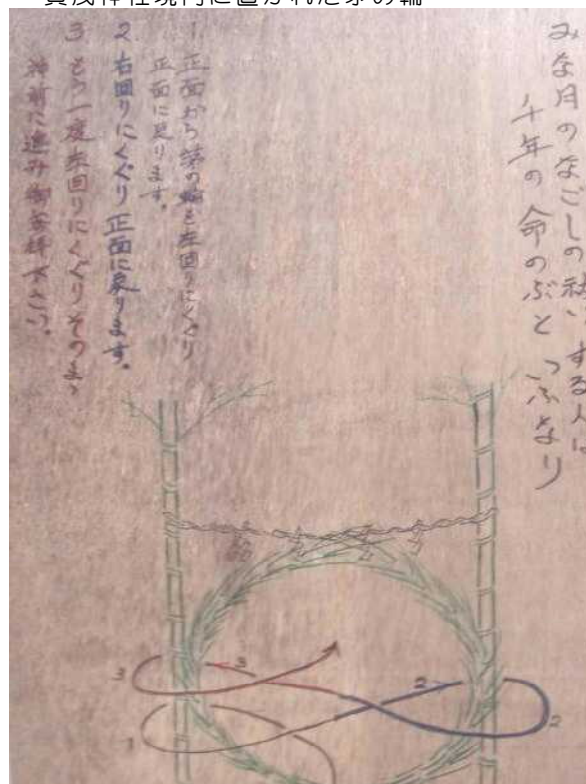 賀茂神社境内に置かれた茅の輪
みな月のなごしの祓いする人は
千年の命のぶといふなり
1. 正面から茅の輪を左回りにくぐり
正面に戻ります。
2 右回りにくぐり正面に戻ります。
3 もう一度左回りにくぐりそのまゝ
神前に進み御参拝下さい。
3
3
2
2
1